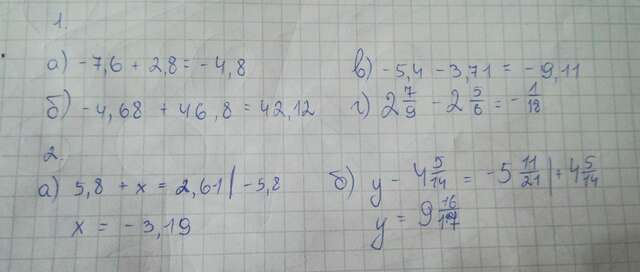 1.
а) -7,6 + 2,8 = -4,8
в) -5,4 - 3,71 = -9,11
б) -4,68 + 46,8 = 42,12
г) 2 7/9 - 2 5/6 = - 1/18
2.
а) 5,8 + x = 2,61 | -5,8
x = -3,19
б) y - 4 5/14 = -5 11/21 | + 4 5/14
y = 9 16/17